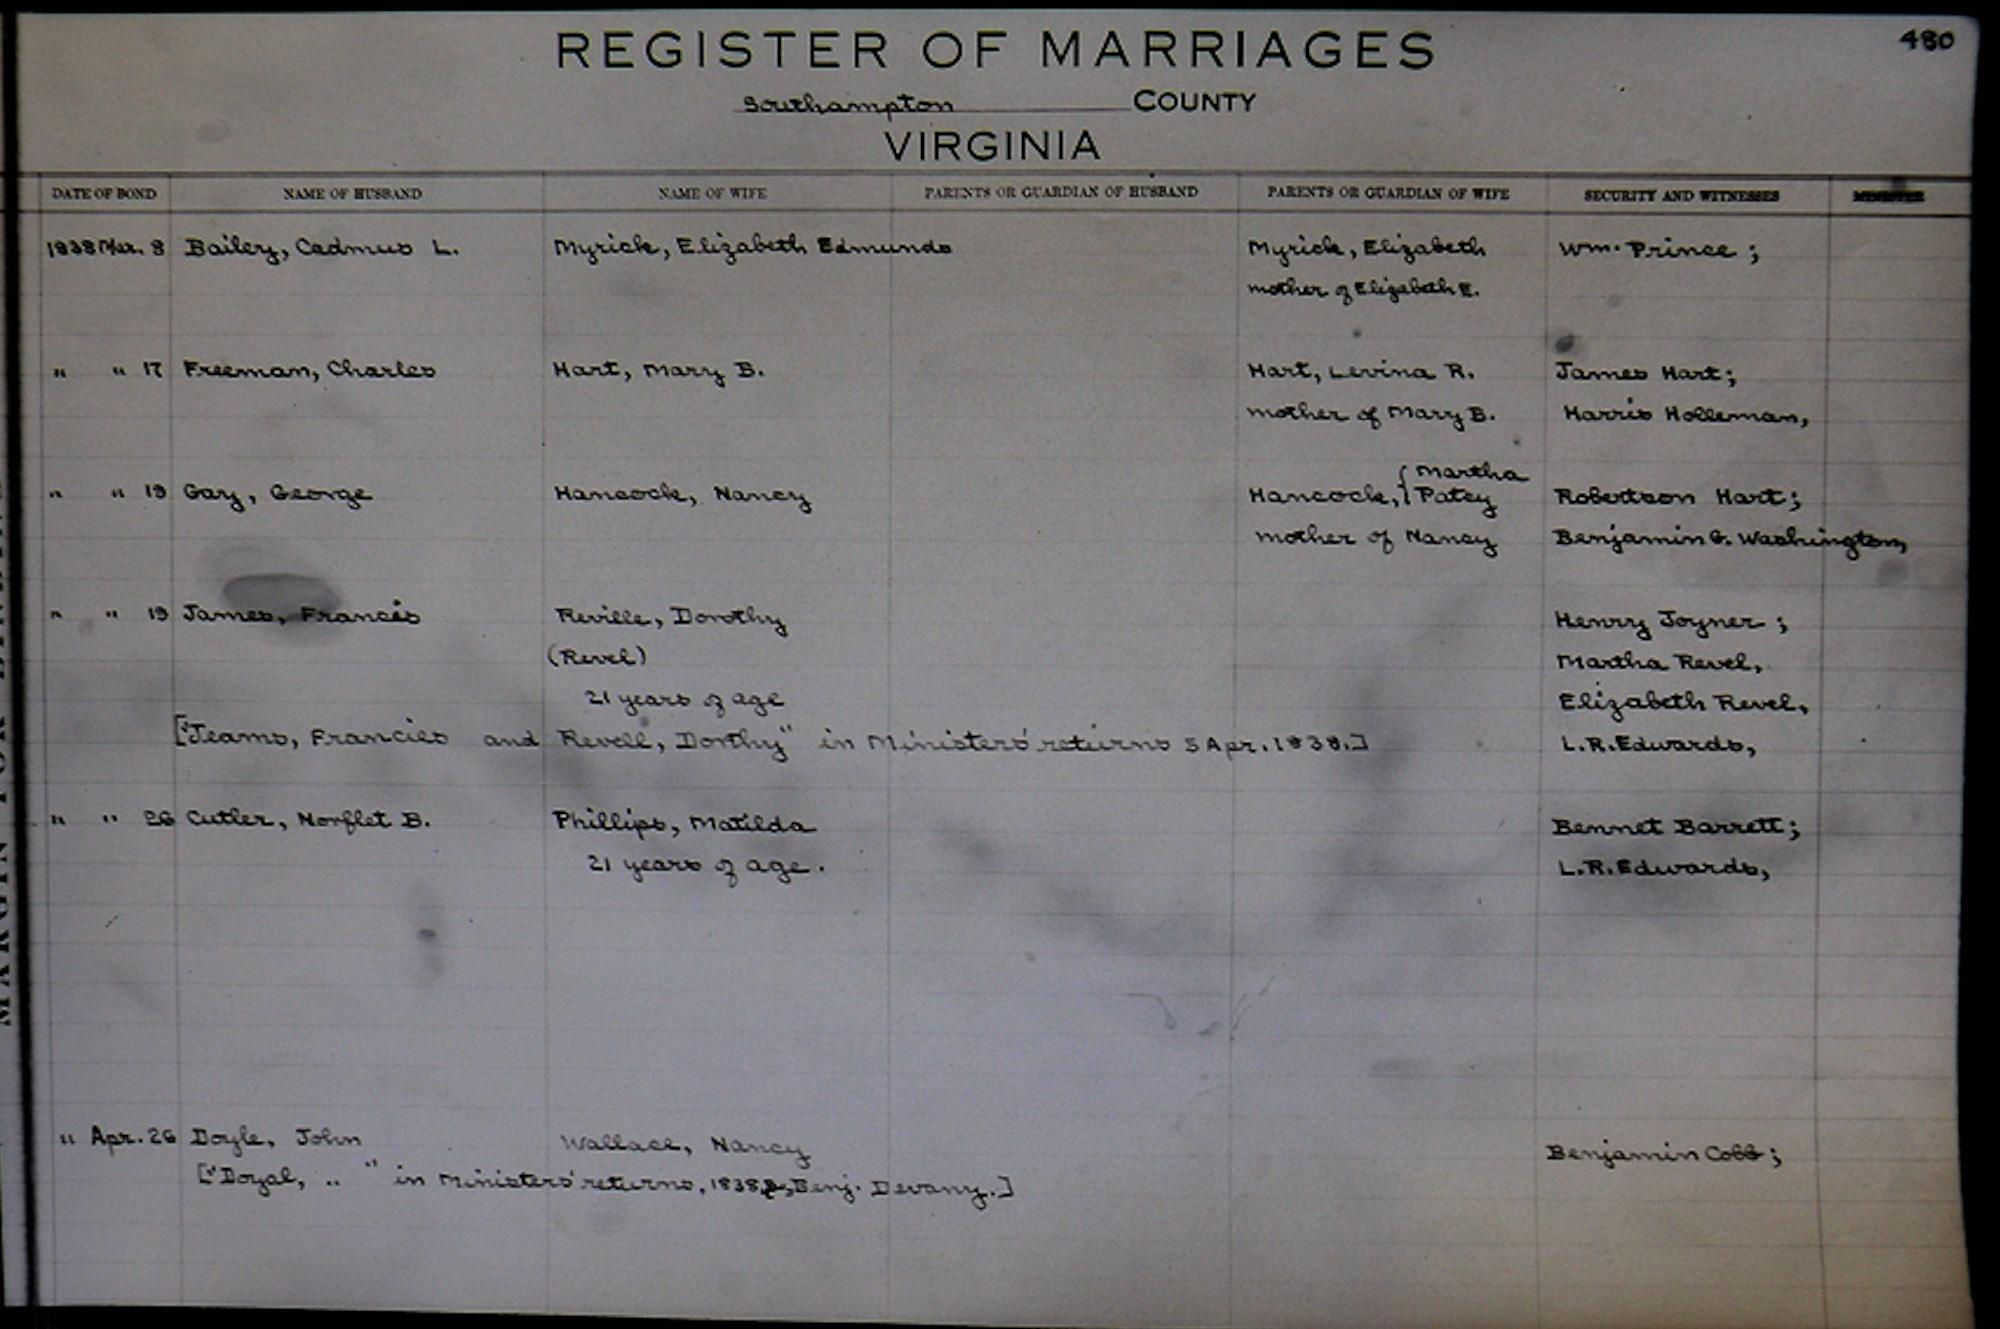 REGISTER OF MARRIAGES
480
Southampton COUNTY
VIRGINIA
DATE OF BOND NAME OF HUSBAND NAME OF WIFE PARENTS OR GUARDIAN OF HUSBAND PARENTS OR GUARDIAN OF WIFE SECURITY AND WITNESSES MINISTER
1838 Mar. 8 Bailey, Cadmus L. Myrick, Elizabeth Edmunds Myrick, Elizabeth Wm. Prince ;
mother of Elizabeth E.
" " 17 Freeman, Charles Hart, Mary B. Hart, Levina R. James Hart;
mother of Mary B. Harris Holleman,
Martha
" " 19 Gay, George Hancock, Nancy Hancock, { Patcy Robertson Hart;
mother of Nancy Benjamin G. Washington,
" " 19 James, Francis Reville, Dorothy Henry Joyner ;
(Revel) Martha Revel,
21 years of age Elizabeth Revel,
["Jeams, Francies and Revell, Dorthy" in Ministers' returns 5 Apr. 1838.] L.R. Edwards,
" " 26 Cutler, Norflet B. Phillips, Matilda Bennet Barrett;
21 years of age. L.R. Edwards,
" Apr. 26 Doyle, John Wallace, Nancy Benjamin Cobb;
["Doyal, .. " in Ministers' returns, 1838, Benj. Devany.]
MARGIN FOR BINDING